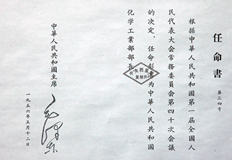 任命書
根據中華人民共和國第一屆全國人
民代表大會常務委員會第四十次會議
的決定，任命 為中華人民共和國
化學工業部部長
中華人民共和國主席
毛澤東
一九五六年五月十二日